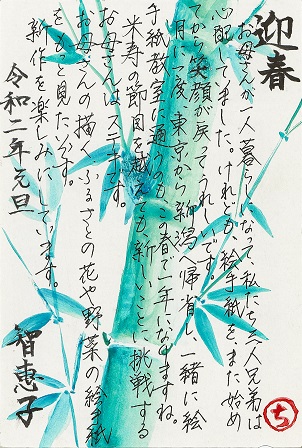 迎春
お母さんが一人暮らしになって私たち三人兄弟は
心配していました。けれども、絵手紙をまた始め
てから笑顔が戻ってうれしいです。
月に一度、東京から新潟へ帰省し、一緒に絵
手紙教室に通うのもこの春で一年になりますね。
米寿の節目を越えても新しいことに挑戦する
お母さんは
お母さんの描くふるさとの花や野菜の絵手紙
をもっと見たいです。
新作を楽しみにしています。
令和二年元旦
智恵子
ち